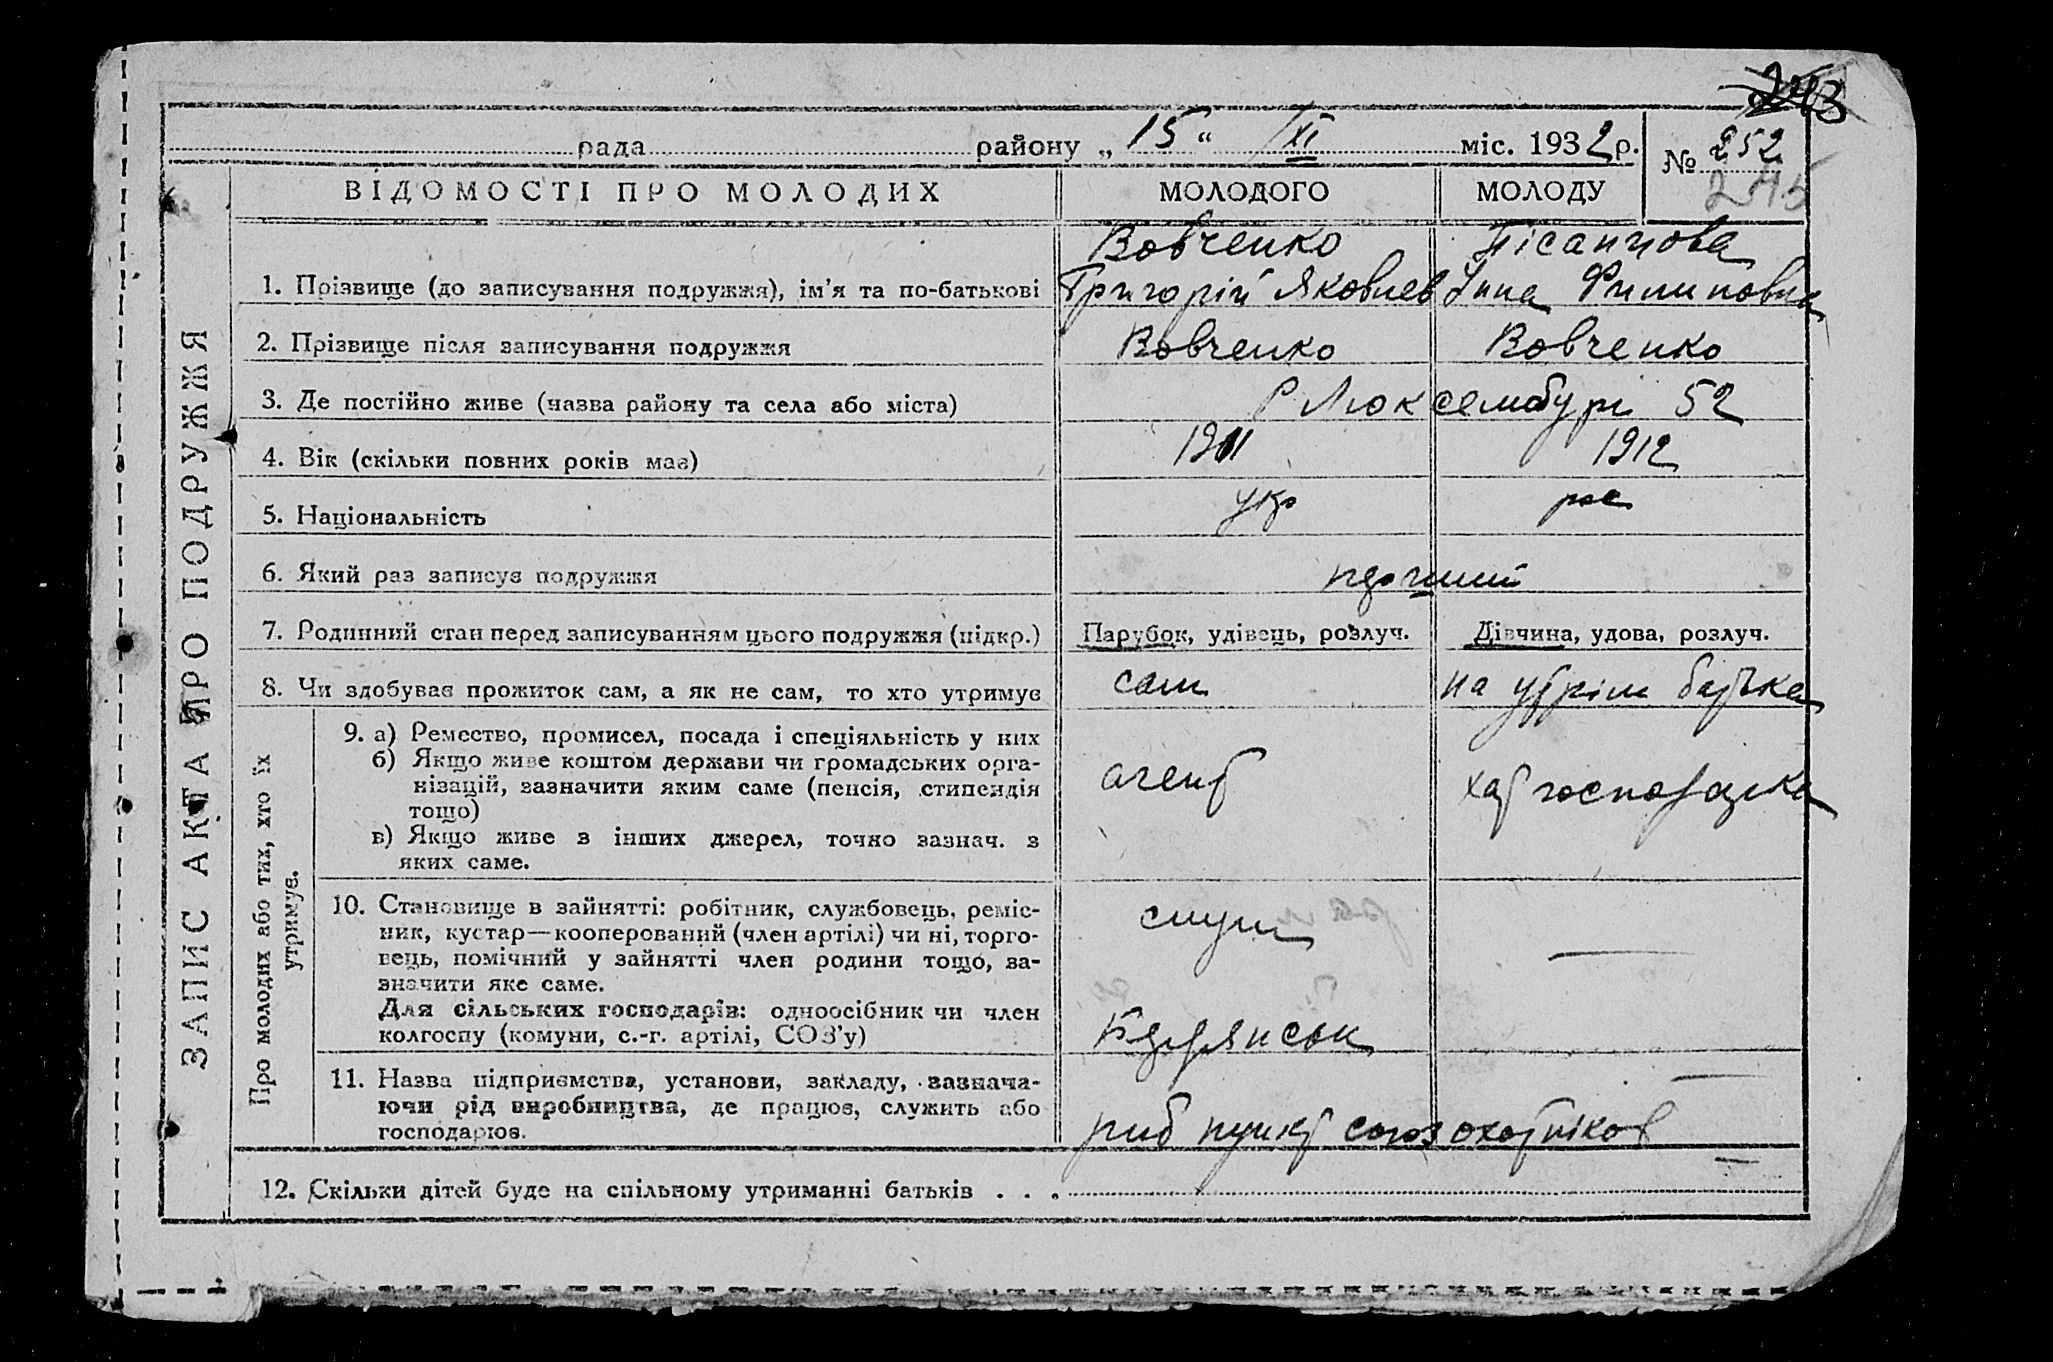 243
рада района „ 15 “ XI міс. 1932 р. № 252
245
ЗАПИС АКТА ПРО ПОДРУЖЖЯ
ВІДОМОСТІ ПРО МОЛОДИХ МОЛОДОГО МОЛОДУ
Вовченко
1. Прізвище (до записування подружжя), ім’я та по-батькові Григорій Яковлев Інна Филиповна
2. Прізвище після записування подружжя Вовченко Вовченко
3. Де постійно живе (назва району та села або міста) Р Люксембург 52
4. Вік (скільки повних років має) 1911 1912
5. Національність укр рос
6. Який раз записує подружжя перший
7. Родинний стан перед записуванням цього подружжя (підкр.) Парубок, удівець, розлуч. Дівчина, удова, розлуч.
8. Чи здобуває прожиток сам, а як не сам, то хто утримує сам на утрим батька
Про молодих або тих, хто їх
утримує.
9. а) Ремество, промисел, посада і спеціяльність у них
б) Якщо живе коштом держави чи громадських орга-
нізацій, зазначити яким саме (пенсія, стипендія
тощо)
в) Якщо живе з інших джерел, точно зазнач. з
яких саме.
агент хатгосподарка
10. Становище в зайнятті: робітник, службовець, реміс-
ник, кустар—кооперований (член артілі) чи ні, торго-
вець, помічний у зайнятті член родини тощо, за-
значити яке саме.
Для сільських господарів: одноосібник чи член
колгоспу (комуни, с.-г. артілі, СОЗ’у)
служ
Бердянськ
11. Назва підприємства, установи, закладу, зазнача-
ючи рід виробництва, де працює, служить або
господарює.
риб пункт союзохотніков
12. Скільки дітей буде на спільному утриманні батьків . . . —